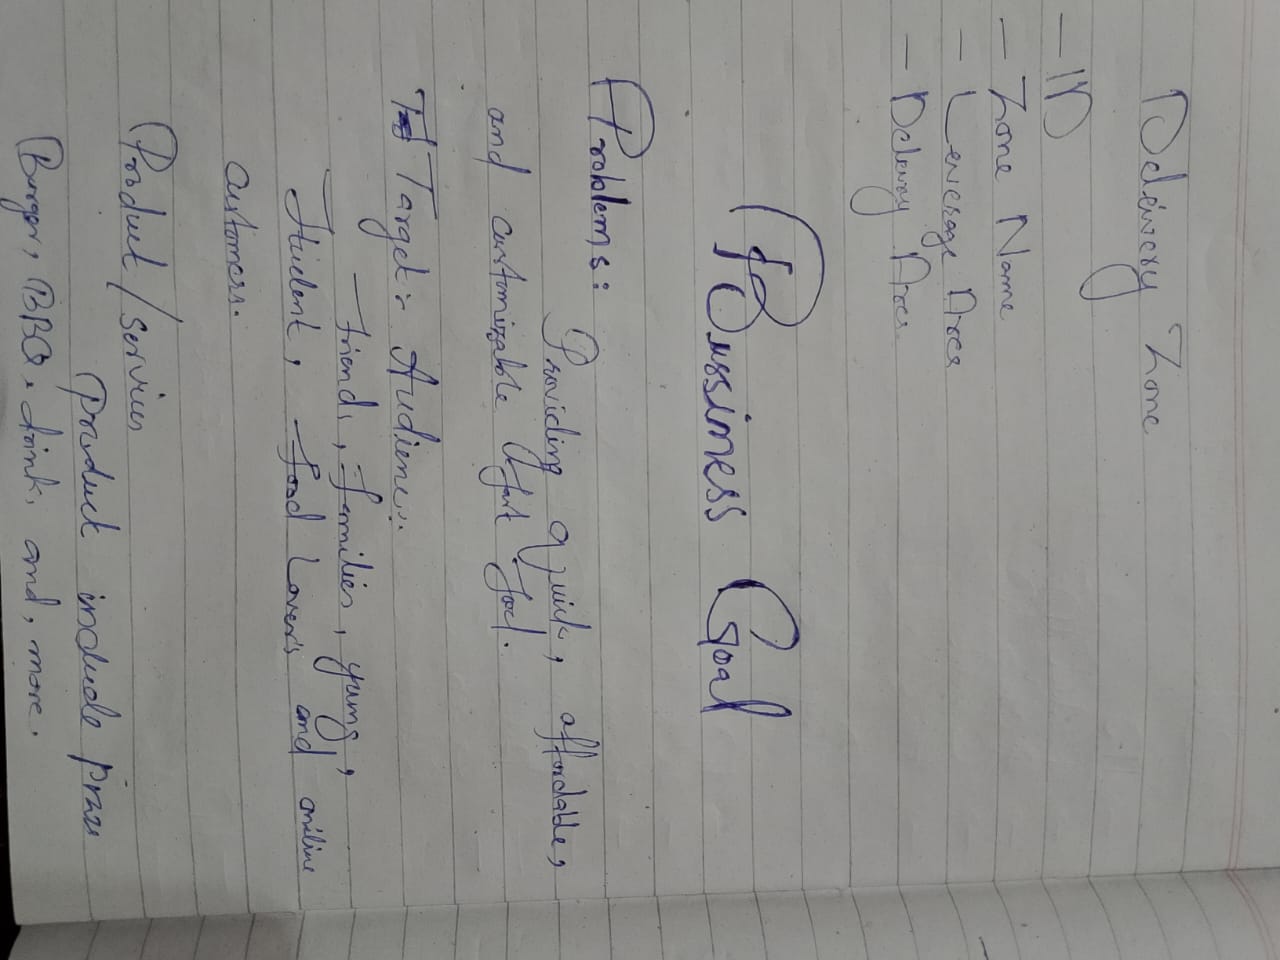 Delivery Zone
- ID
- Zone Name
- Coverage Area
- Delivery Area.
Bussiness Goal
Problems:
Providing quick, affordable,
and customizable fast food.
Target Audience:
friends, families, young,
Student, food Lovers and online
customers.
Product / Services
Product include Pizza
Burger, BBQ, drinks and, more.